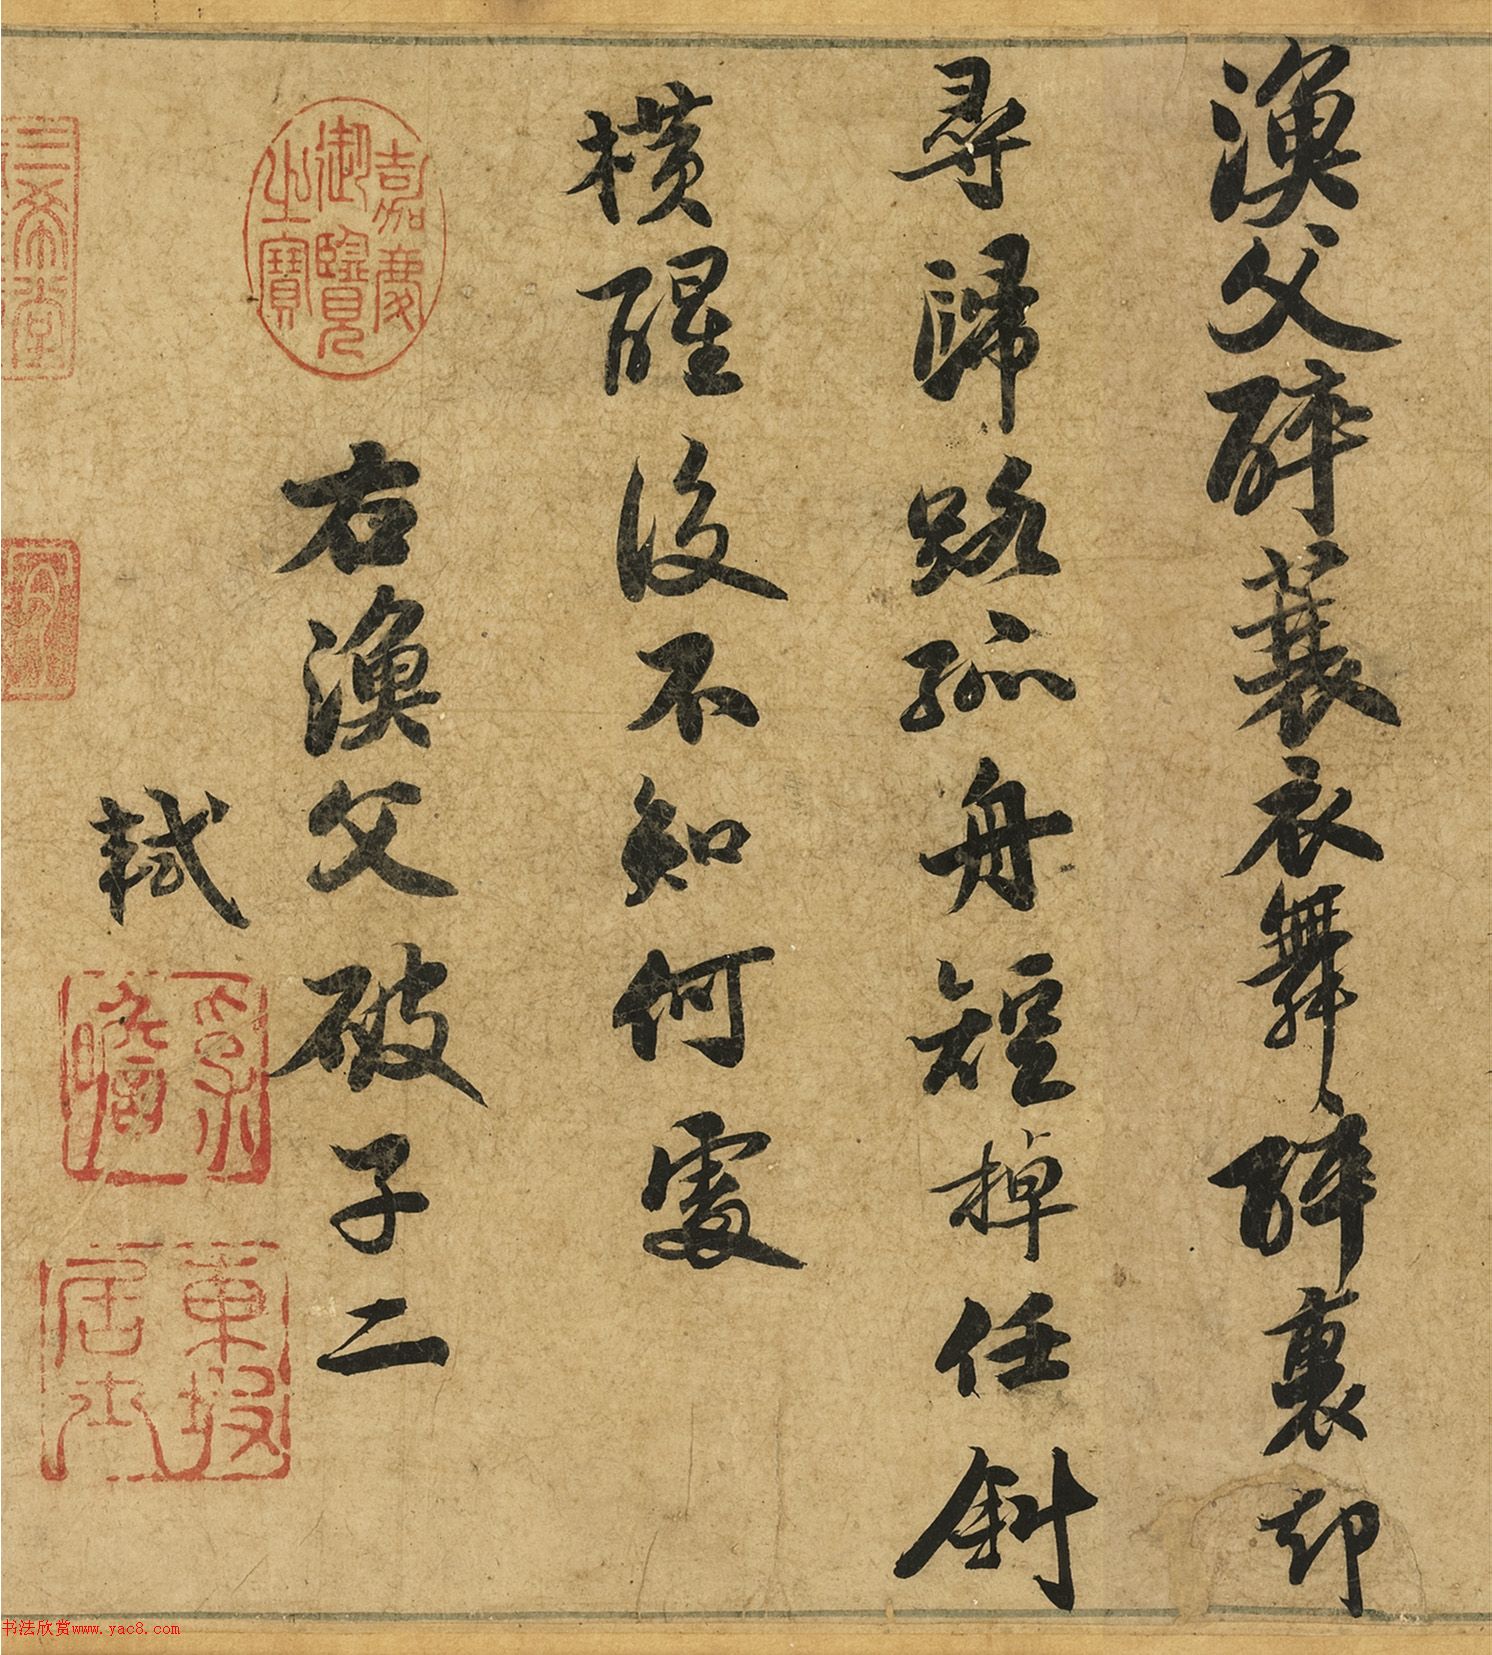 漁父醉蓑衣舞醉裏却
尋歸路孤舟短棹任斜
橫醒後不知何處
右漁父破子二
軾
嘉慶御覽之寶
三希堂
東坡居士
书法欣赏www.yac8.com